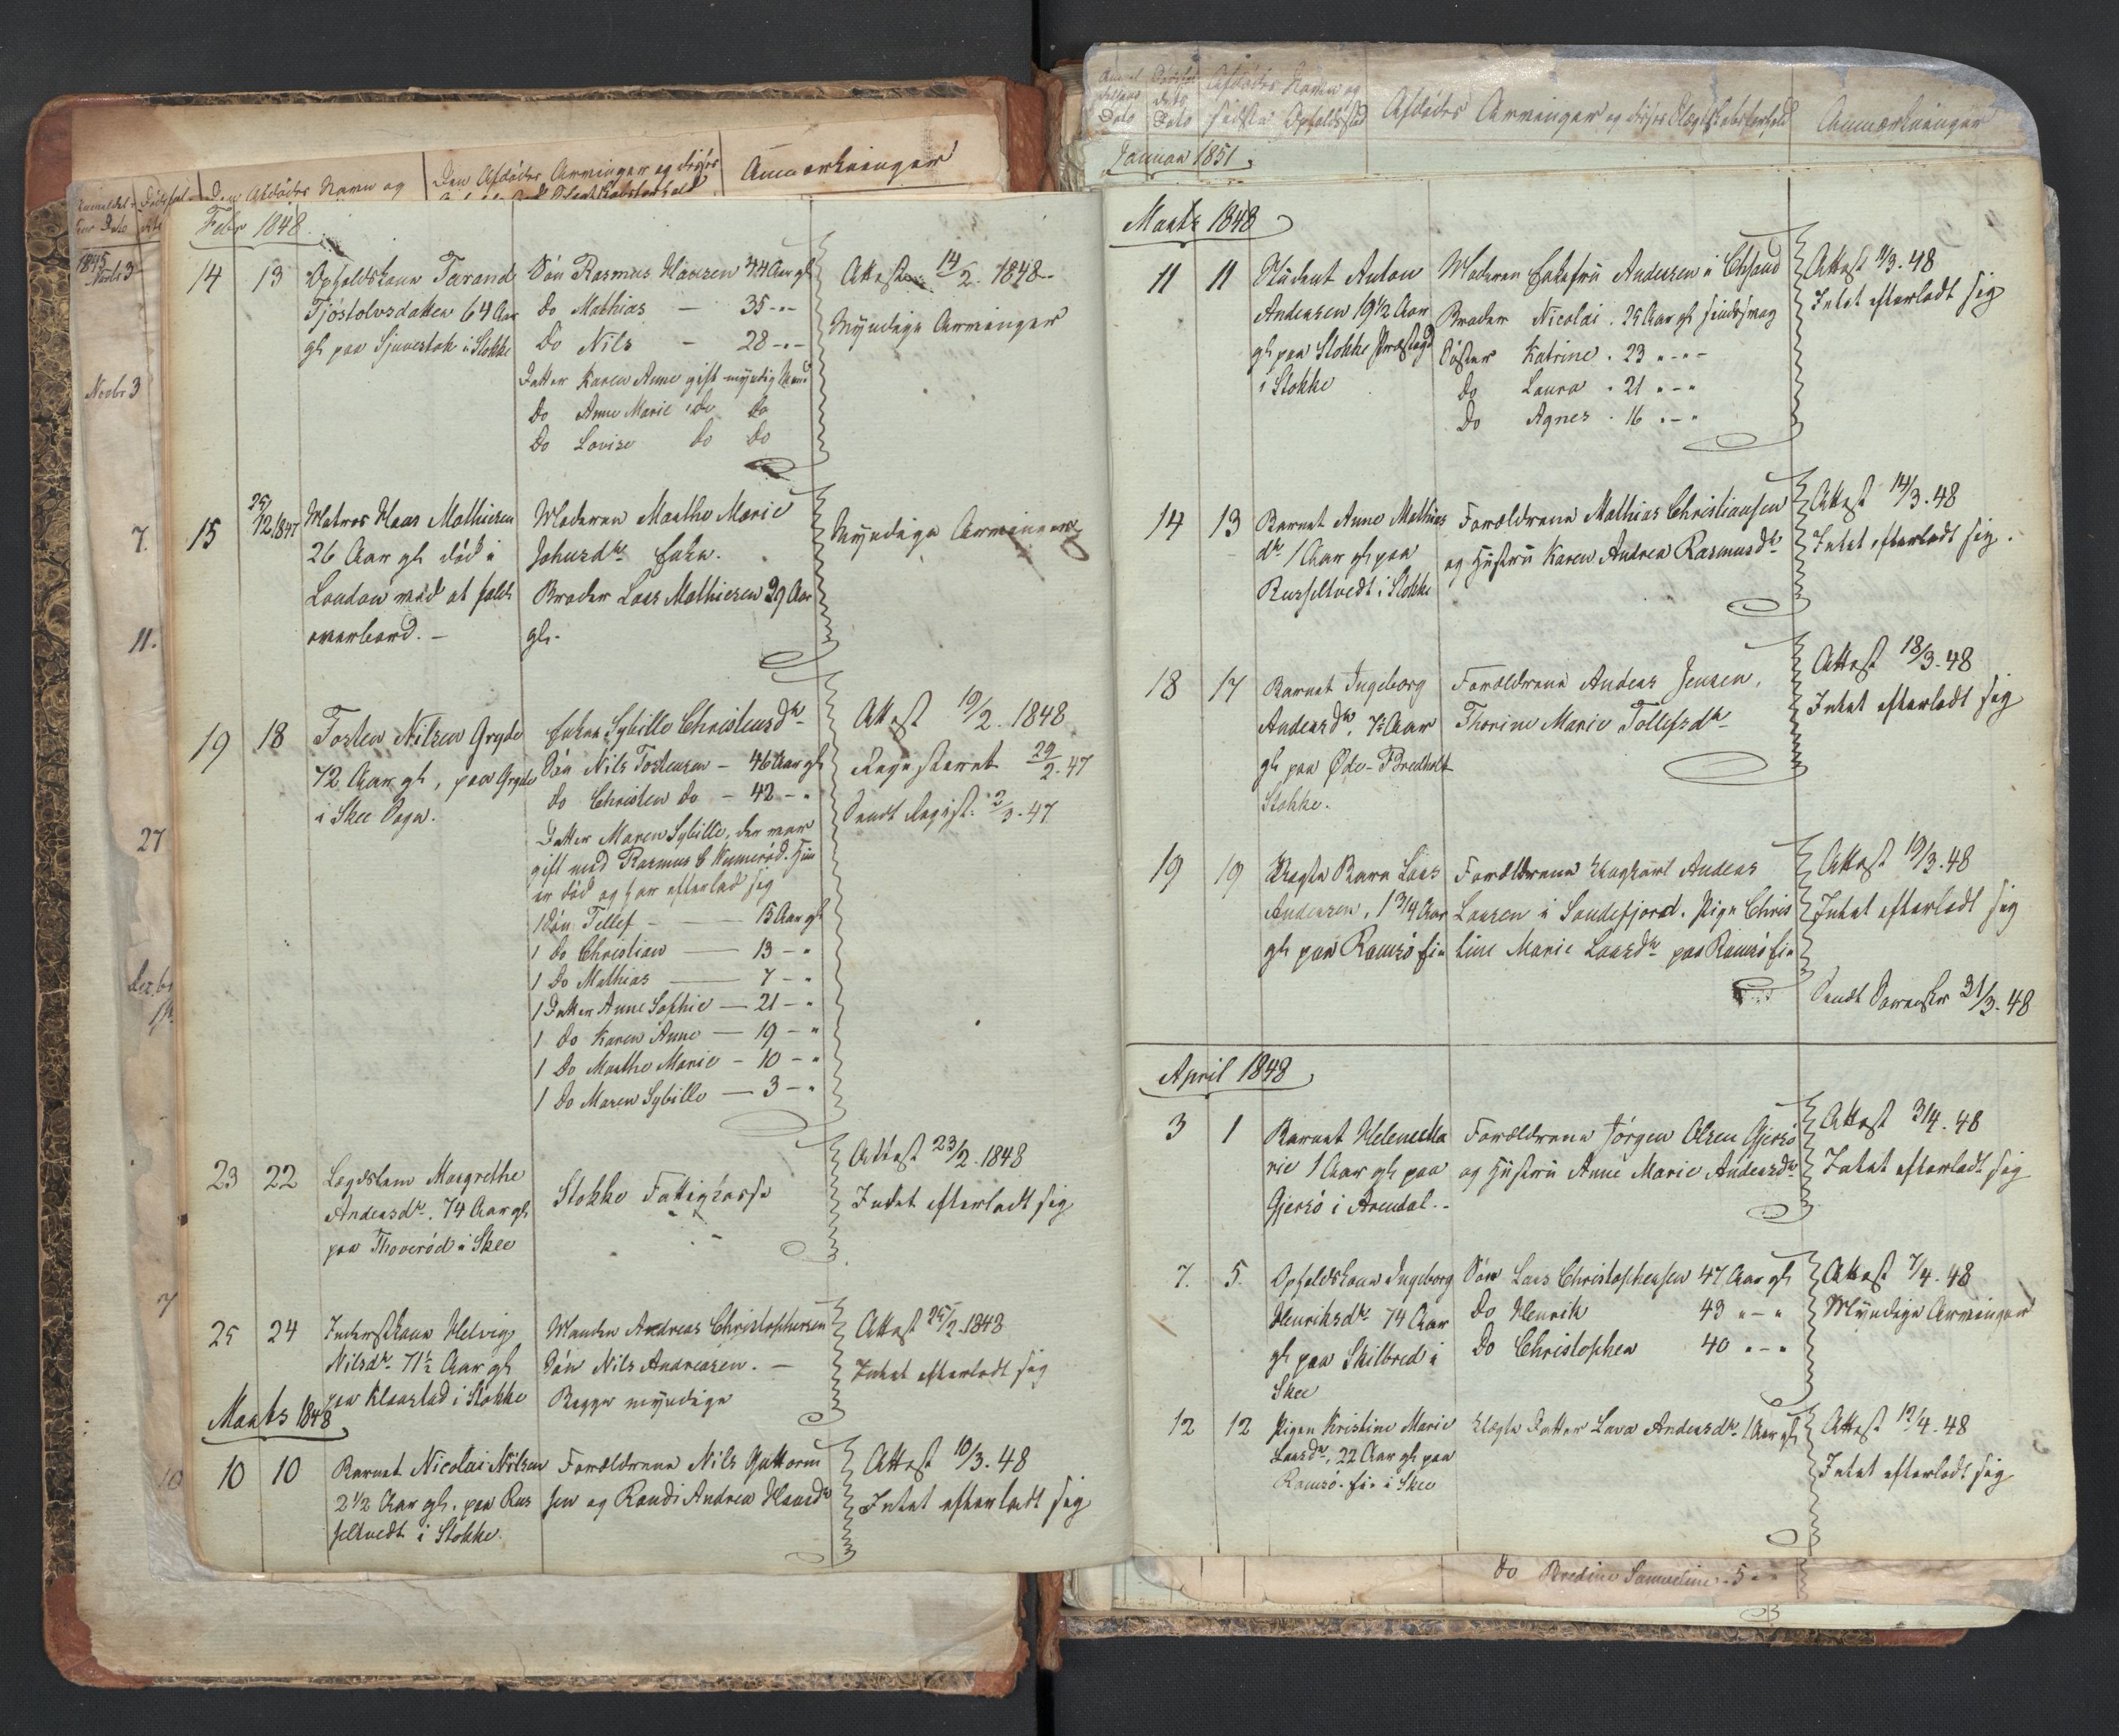 Den Afdödes Navn og
Den Afdödes Arvinger og disses
Anmærkninger
1845
Novbr 3
Novbr 3
7.
11.
27
7
10
Febr 1848.
14 13 Opholdskone Tarand
Tjöstolvsdatter 64 Aar
gl paa Sjuvestok i Stokke
Sön Rasmus Hansen 44 Aar gl
Do Mathias — 35 - "-
Do Nils — 28 - "-
Datter Karen Anne gift myndig Mand
Do Anne Marie do do
Do Lovise do do
Attest 14/2. 1848-
Myndige Arvinger
15 25/12 1847 Matros Hans Mathiesen
26 Aar gl död i
London ved at falde
overbord. -
Moderen Marthe Marie
Johnsdtr Enke.
Broder Lars Mathiesen 29 Aar
gl.
Myndige Arvinger
19 18 Tosten Nilsen Gryde
72 Aar gl, paa Gryde
i Skee Sogn.
Enken Sybille Christensdtr
Sön Nils Tostensen - 46 Aar gl
do Christen do - 42 - "
Datter Maren Sybille, der var
gift med Rasmus C Kummeröd. Hun
er död og har efterladt sig
1 Sön Tellef — 15 Aar gl
1 do Christian — 13 - "
1 Do Mathias — 7 - "
1 Datter Anne Sophie — 21 - "
1 do Karen Anne — 19 - "
1 Do Marthe Marie - 10 - "
1 Do Maren Sybille — 3 - "
Attest 19/2. 1848
Registeret 29/2. 47
Sendt Regist. 2/3. 47
23 22 Lægdslem Margrethe
Andersdtr. 74 Aar gl
paa Thoveröd i Skee
Stokke Fattigkasse
Attest 23/2. 1848
Intet efterladt sig
25 24 Inderstkone Helvig
Nilsdtr 71½ Aar gl
paa Klaastad i Stokke
Manden Andreas Christophersen
Sön Nils Andreasen. —
Begge myndige
Attest 25/2. 1848
Intet efterladt sig
Marts 1848
10 10 Barnet Nicolai Nilsen
2½ Aar gl. paa Rus
seltvedt i Stokke.
Forældrene Nils Guttorm
sen og Randi Andrea Hansdtr
Attest 10/3. 48
Intet efterladt sig
Afdödes Navn og
sidste Opholdssted
Afdödes Arvinger og disses Slægtskabsforhold
Anmærkninger
Januar 1851.
Marts 1848
11 11 Student Anton
Andersen 19½ Aar
gl paa Stokke Præstegd
i Stokke
Moderen Enkefru Andersen i Chsand
Broder Nicolai . 25 Aar gl sindssvag
Söster Katrine . 23 " - "
do Laura . 21 " - "
Do Agnes . 16 " - "
Attest 11/3. 48
Intet efterladt sig
14 13 Barnet Anne Mathias
dtr 1 Aar gl paa
Russeltvedt i Stokke
Forældrene Mathias Christiansen
og Hustru Karen Andrea Rasmusdtr
Attest 14/3. 48
Intet efterladt sig.
18 17 Barnet Ingeborg
Andersdtr. 7½ Aar
gl paa Öde-Bredholt
Stokke.
Forældrene Anders Jensen,
Thorine Marie Tollefsdtr
Attest 18/3. 48
Intet efterladt sig
19 19 Uægte Barn Lars
Andersen, 1 3/4 Aar
gl paa Ramsö Eie
Forældrene Ungkarl Anders
Larsen i Sandefjord. Pige Chris
tine Marie Larsdtr paa Ramsö Eie
Attest 19/3. 48
Intet efterladt sig
Sendt Sorenskr 31/3. 48
April 1848
3 1 Barnet Helene Ma
rie 1 Aar gl paa
Gjersö i Arendal. -
Forældrene Jörgen Olsen Gjersö
og Hustru Anne Marie Andersdtr
Attest 3/4. 48
Intet efterladt sig
7. 5. Opholdskone Ingeborg
Henriksdtr 74 Aar
gl paa Skilbred i
Skee
Sön Lars Christophersen 47 Aar gl
Do Henrik 43 " - "
Do Christopher 40 " - "
Attest 7/4. 48
Myndige Arvinger
12 12 Pigen Kristine Marie
Larsdtr, 22 Aar gl paa
Ramsö-Eie i Skee
Uægte Datter Lava Andersdtr 1 Aar gl
Attest 12/4. 48
Intet efterladt sig
do Bredine Samueline . 5 - "